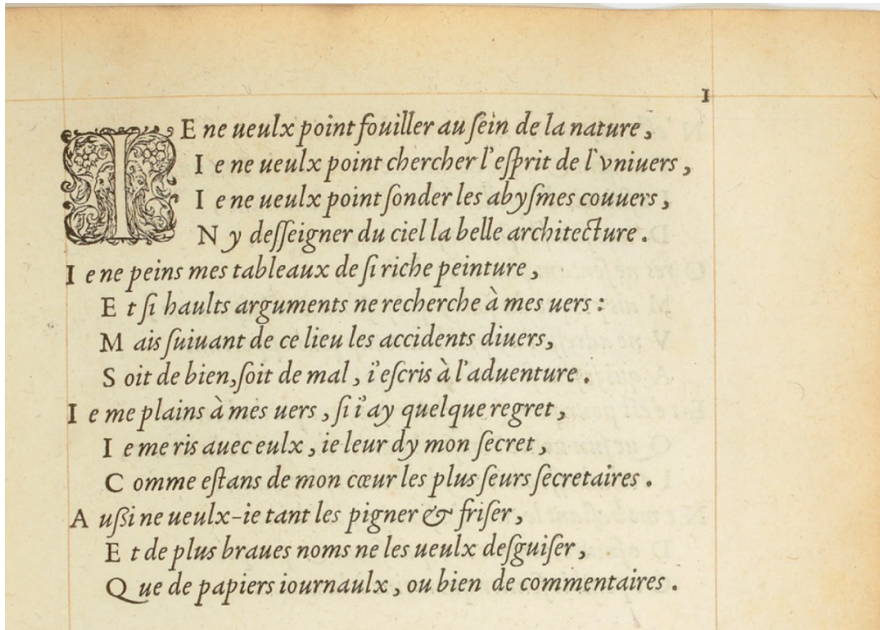 1
IE ne ueulx point fouiller au ſein de la nature,
Ie ne ueulx point chercher l'eſprit de l'vniuers,
Ie ne ueulx point ſonder les abyſmes couuers,
Ny deſſeigner du ciel la belle architecture.
Ie ne peins mes tableaux de ſi riche peinture,
Et ſi haults arguments ne recherche à mes uers:
Mais ſuiuant de ce lieu les accidents diuers,
Soit de bien, ſoit de mal, i'eſcris à l'aduenture.
Ie me plains à mes uers, ſi i'ay quelque regret,
Ie me ris auec eulx, ie leur dy mon ſecret,
Comme eſtans de mon cœur les plus ſeurs ſecretaires.
Außi ne ueulx-ie tant les pigner & friſer,
Et de plus braues noms ne les ueulx deſguiſer,
Que de papiers iournaulx, ou bien de commentaires.